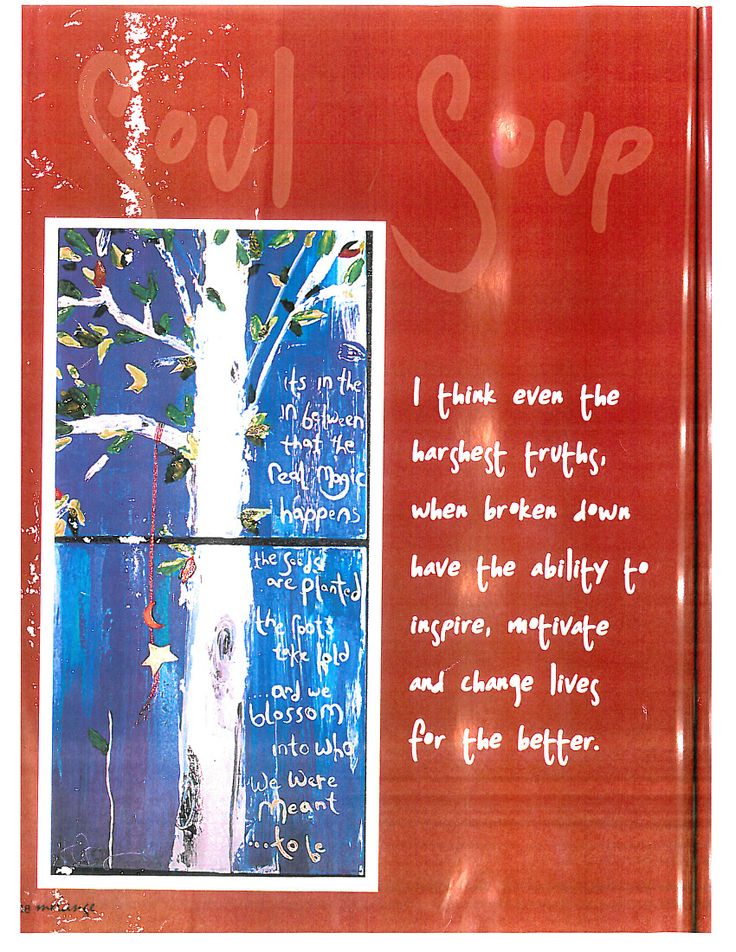 Soul Soup
its in the
in between
that the
real magic
happens
the seeds
are planted
the roots
take hold
...and we
blossom
into who
we were
meant
...to be
I think even the
harshest truths,
when broken down
have the ability to
inspire, motivate
and change lives
for the better.